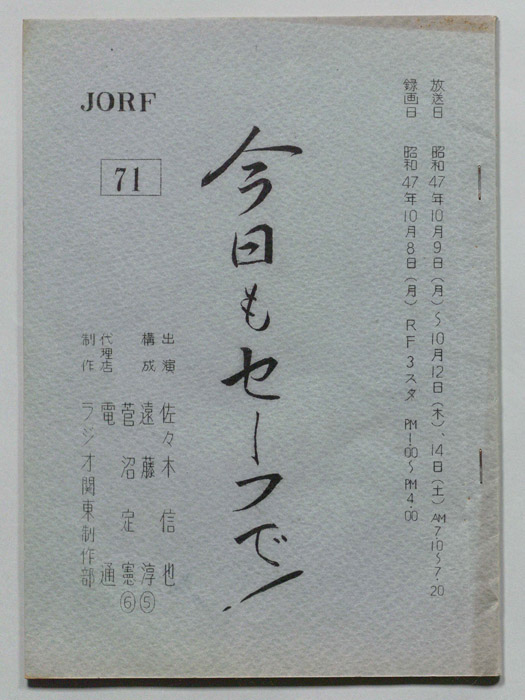 放送日 昭和47年10月9日(月)〜10月12日(木)、14日(土)AM7.10〜7.20
録画日 昭和47年10月8日(月)RF3スタ PM1.00〜PM4.00
JORF
71
今日もセーフで!
出演 佐々木信也
構成 遠藤淳⑤
菅沼定憲⑥
代理店 電通
制作 ラジオ関東制作部